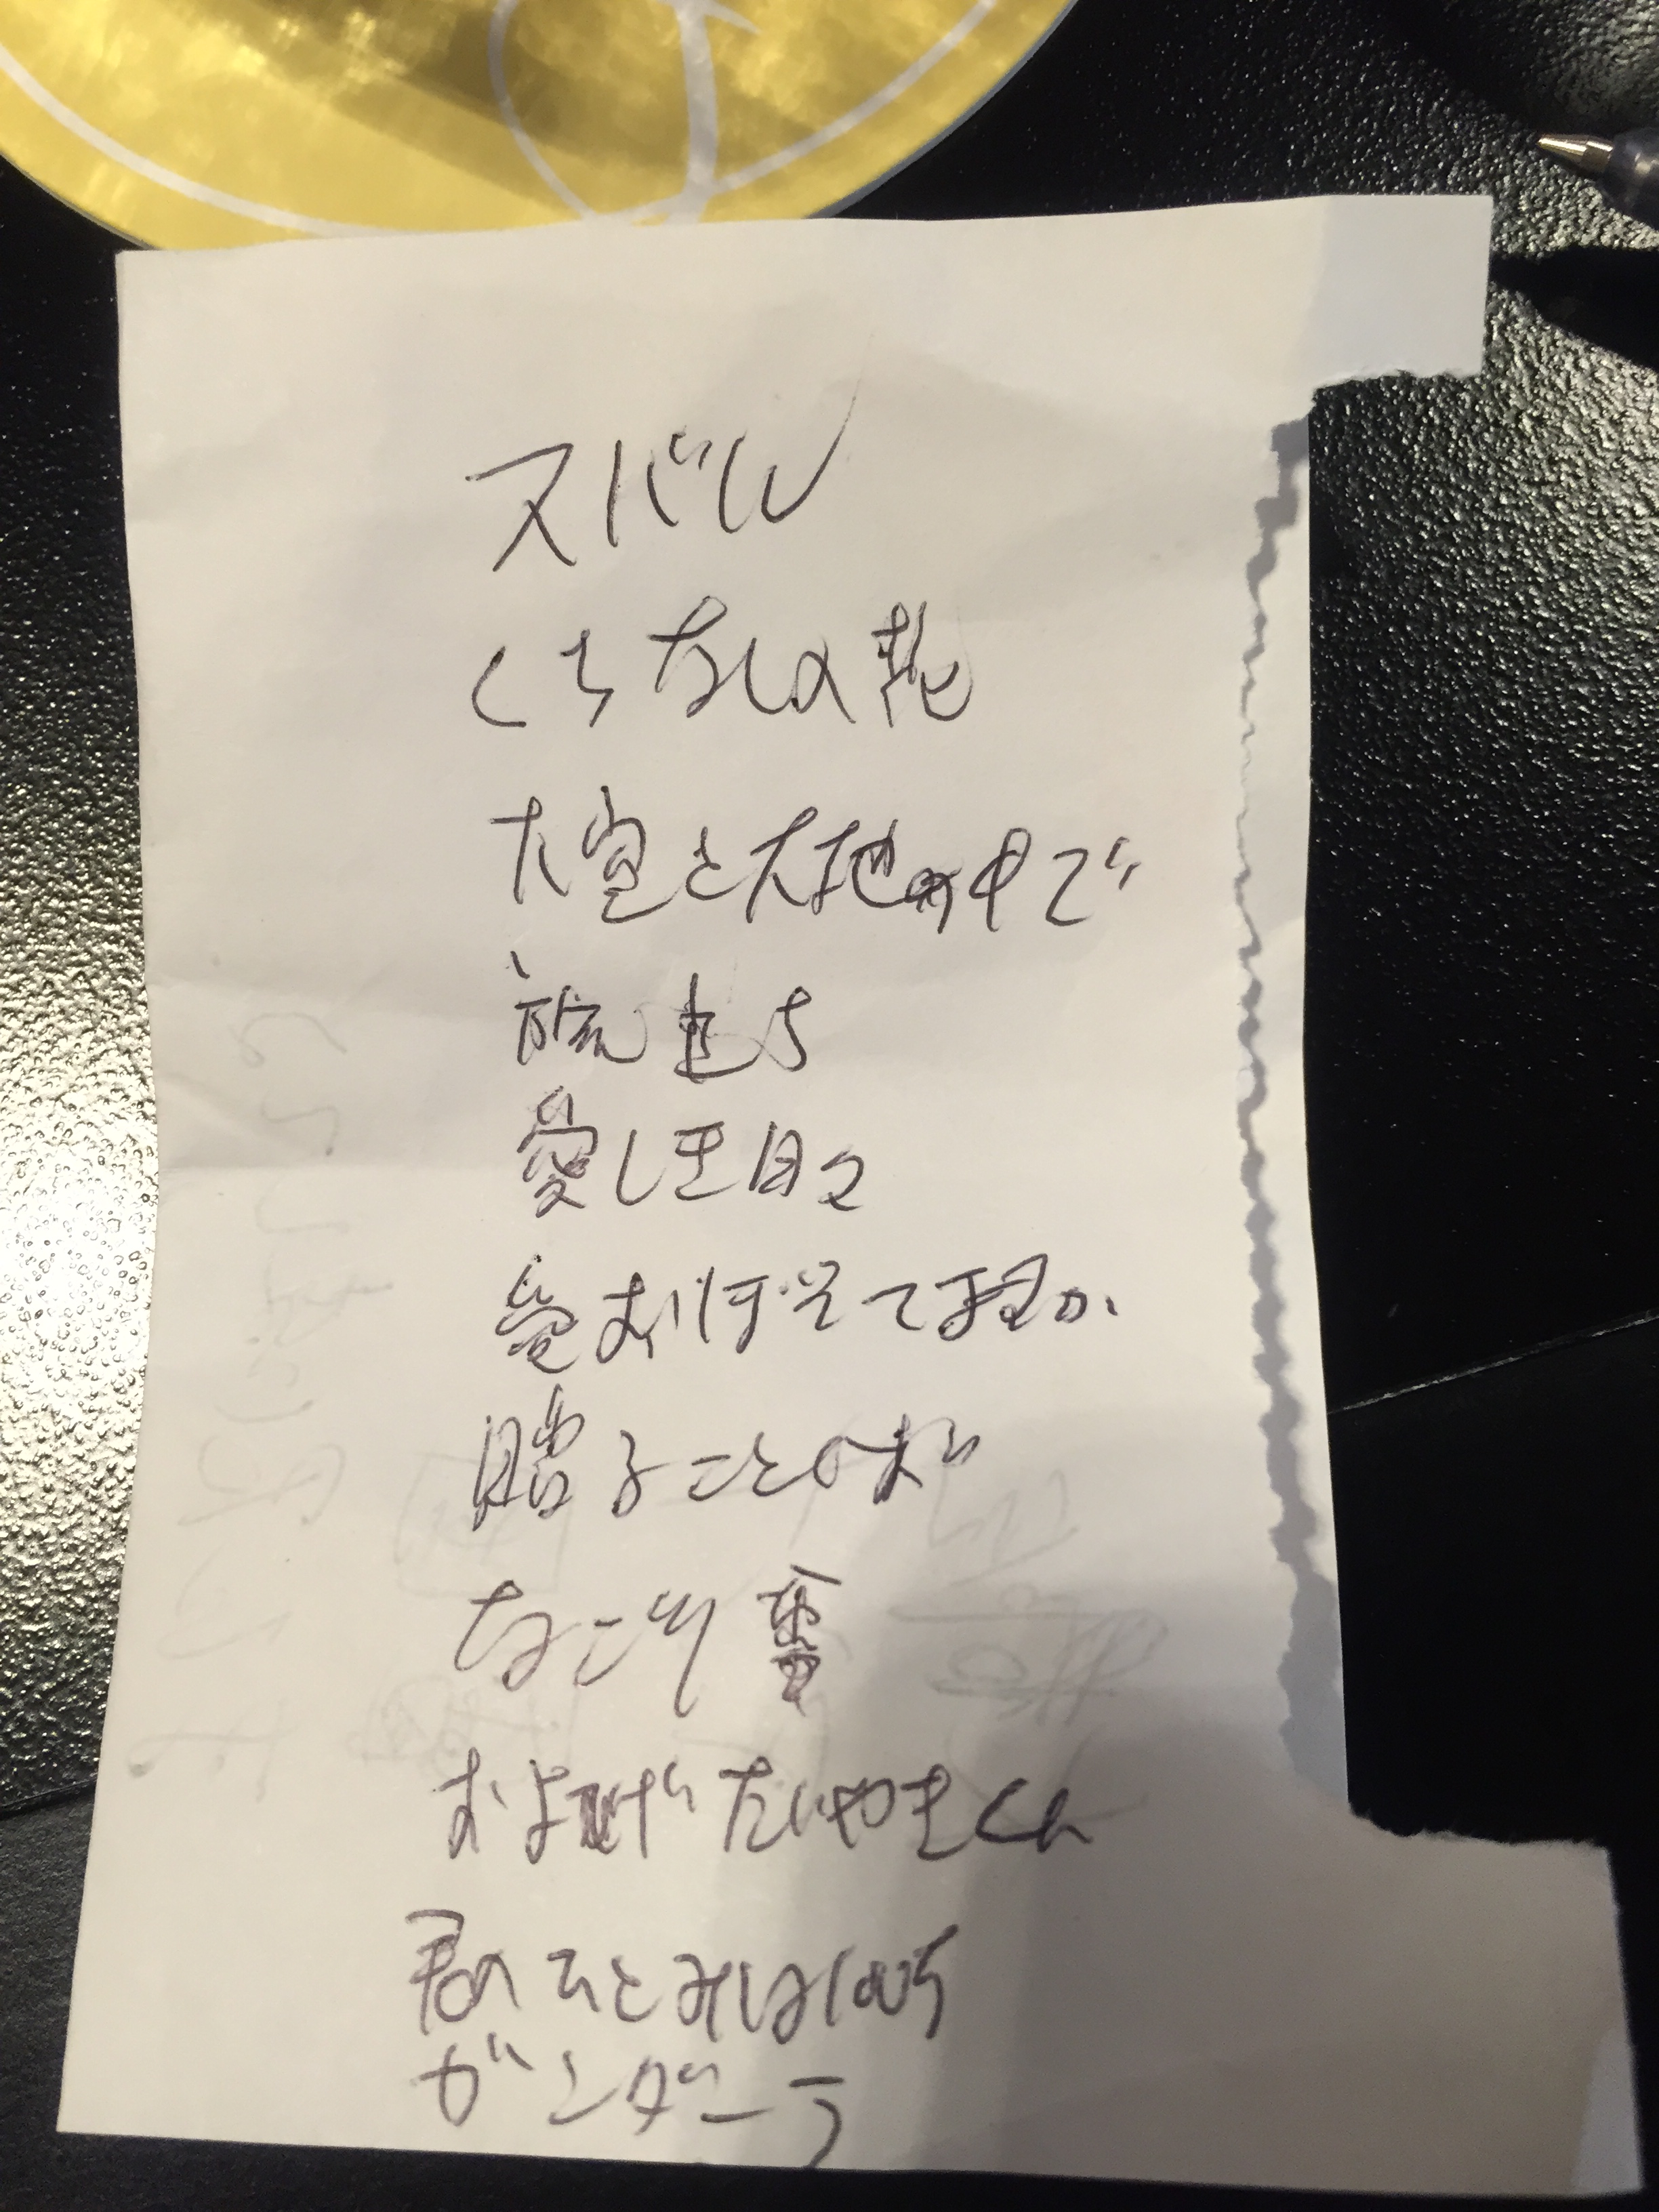 スバル
くちなしの花
大空と大地の中で
旅立ち
愛しき日々
愛おぼえてますか
贈ることば
なごり雪
およげたいやきくん
君のひとみは1万
ガンダーラ